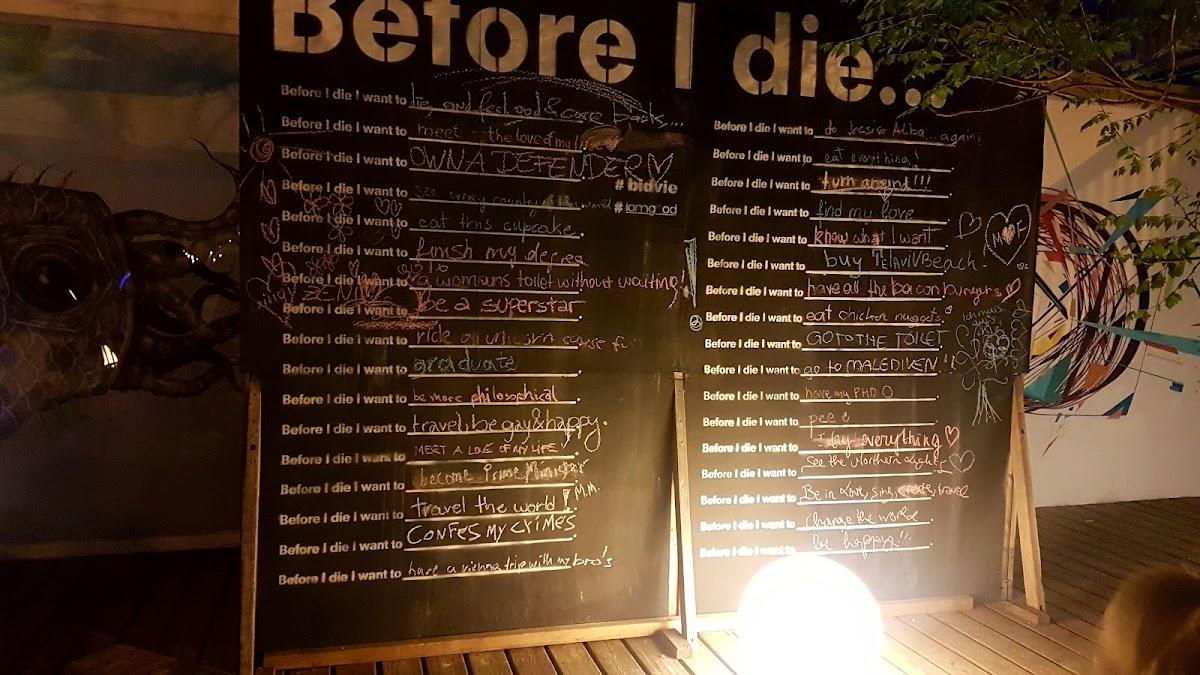 Before I die...
Before I die I want to die, and feel god & come back...
Before I die I want to meet the love of my
Before I die I want to OWN A DEFENDER
#bidvie
Before I die I want to see every country of the world
#iamgod
Before I die I want to eat this cupcake.
Before I die I want to finish my degree
Before I die I want to go to a womans toilet without waiting!
ZEN
Before I die I want to be a superstar
Before I die I want to ride a unicorn
Before I die I want to graduate
Before I die I want to be more philosophical
Before I die I want to travel, be gay & happy.
Before I die I want to MEET A LOVE OF MY LIFE
Before I die I want to become Prime Minister
Before I die I want to travel the world! M.M.
Before I die I want to CONFES MY CRIMES
Before I die I want to have a vienna trip with my bro's
Before I die I want to do Jessica Alba...again
Before I die I want to eat everything!
Before I die I want to turn around!!!
Before I die I want to find my love
Before I die I want to know what I want
M F
Before I die I want to buy TELAVIV Beach.
Before I die I want to have all the bacon burgers
Before I die I want to eat chicken nuggets
Before I die I want to GO TO THE TOILET
Before I die I want to go to MALEDIVEN!!
Before I die I want to have my PHD
Before I die I want to pee
Before I die I want to everything
Before I die I want to See the Northern Lights
Before I die I want to Be in love, sing, create, travel
Before I die I want to change the world
Before I die I want to be happy!!!